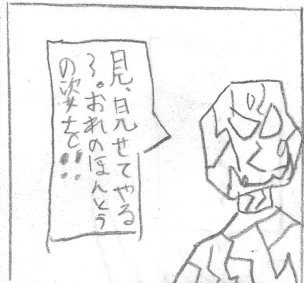 見、見せてやる
ろ。おれのほんとう
の姿を!!